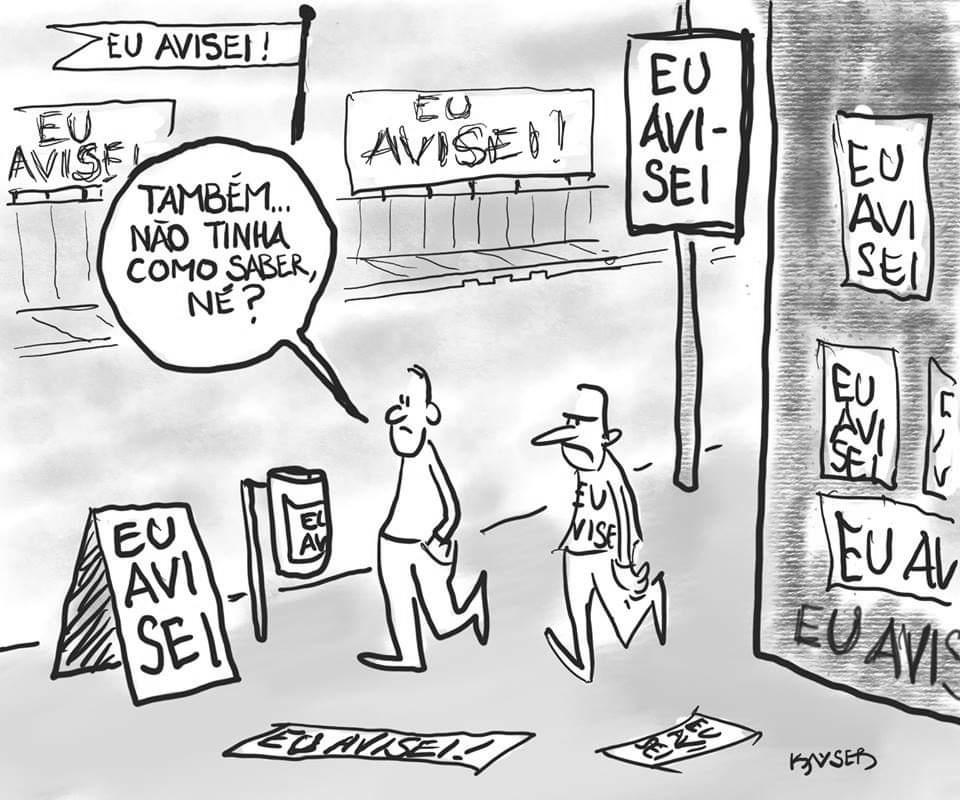 EU AVISEI!
EU
AVISEI!
EU
AVISEI!
EU
AVI-
SEI
TAMBÉM...
NÃO TINHA
COMO SABER,
NÉ?
EU
AVI
SEI
EU
AVI
SEI
E
EU AV
EU AVIS
EU
AVI
SEI
EU
AV
EU
VISE
EU AVISEI!
EU
AVI
SEI
KAYSER